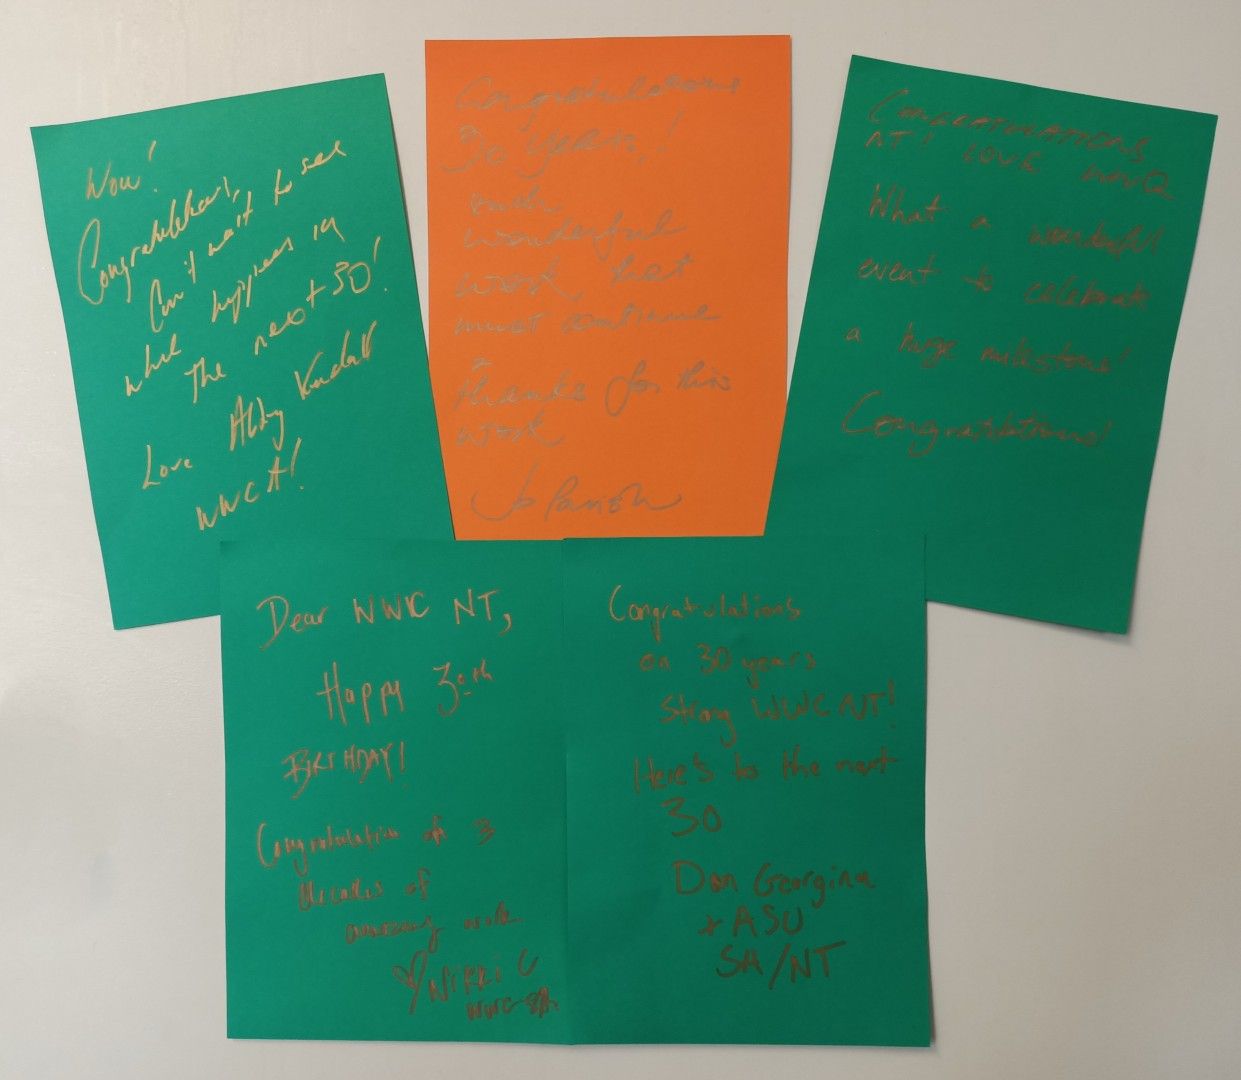 Wow!
Congratulations,
Can't wait to see
what happens in
The next 30!
Love Abby Kendall
WWCA!
Congratulations
30 Years!
such
wonderful
work, that
must continue
&
thanks for this
work
Jo Parish
CONGRATULATIONS
NT! LOVE WWQ
What a wonderful
event to celebrate
a huge milestone!
Congratulations!
Dear WWC NT,
Happy 30th
BIRTHDAY!
Congratulation of 3
decades of
amazing work
Nikki C
WWC SA
Congratulations
on 30 years
Strong WWC NT!
Here's to the next
30
Dan Georgina
+ ASU
SA/NT